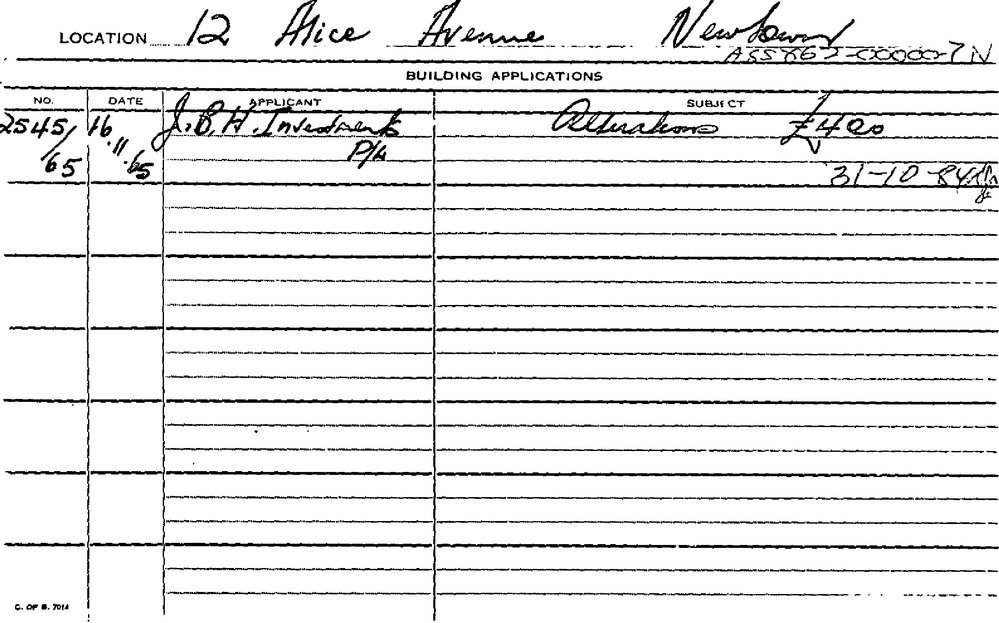 LOCATION 12 Alice Avenue Newtown
BUILDING APPLICATIONS
NO. DATE APPLICANT SUBJECT
2545/ 16. J.B.H. Investments Alterations £400
65 11.65 P/L
31-10-84
C. OF S. 7014